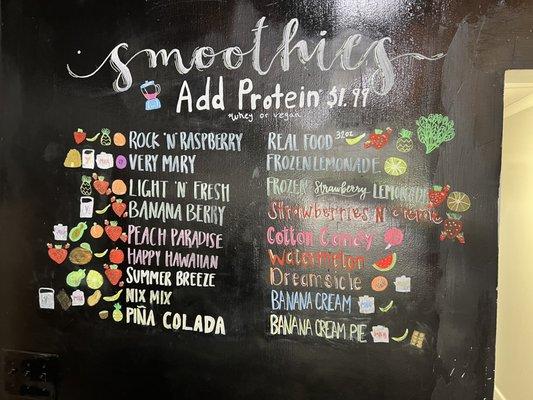 smoothies
Add Protein $1.99
*whey or vegan
ROCK 'N' RASPBERRY
VERY MARY
LIGHT 'N' FRESH
BANANA BERRY
PEACH PARADISE
HAPPY HAWAIIAN
SUMMER BREEZE
NIX MIX
PIÑA COLADA
REAL FOOD 32oz
FROZEN LEMONADE
FROZEN Strawberry LEMONADE
Strawberries N Creme
Cotton Candy
Watermelon
Dreamsicle
BANANA CREAM
BANANA CREAM PIE